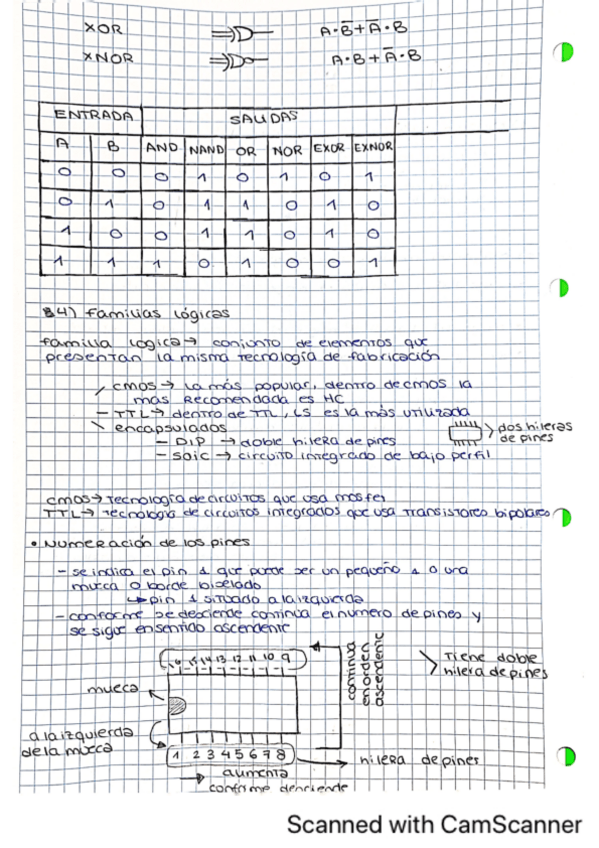 XOR A·B̅+A̅·B
XNOR A·B+A̅·B
ENTRADA SALIDAS
A B AND NAND OR NOR EXOR EXNOR
0 0 0 1 0 1 0 1
0 1 0 1 1 0 1 0
1 0 0 1 1 0 1 0
1 1 1 0 1 0 0 1
4) Familias lógicas
Familia lógica → conjunto de elementos que
presentan la misma tecnología de fabricación
CMOS → la más popular, dentro de cmos la
más recomendada es HC
- TTL → dentro de TTL, LS es la más utilizada
encapsulados
- DIP → doble hilera de pines
- SOIC → circuito integrado de bajo perfil
dos hileras
de pines
CMOS → Tecnología de circuitos que usa mosfet
TTL → Tecnología de circuitos integrados que usa transistores bipolares
• Numeración de los pines
- se indica el pin 1 que puede ser un pequeño 1 o una
mueca o borde biselado
↳ pin 1 situado a la izquierda
- conforme se desciende continua el numero de pines y
se sigue en sentido ascendente
16 15 14 13 12 11 10 9
mueca
a la izquierda
de la mueca
1 2 3 4 5 6 7 8
→ aumenta
conforme desciende
continua
en orden
ascendente
Tiene doble
hilera de pines
hilera de pines
Scanned with CamScanner